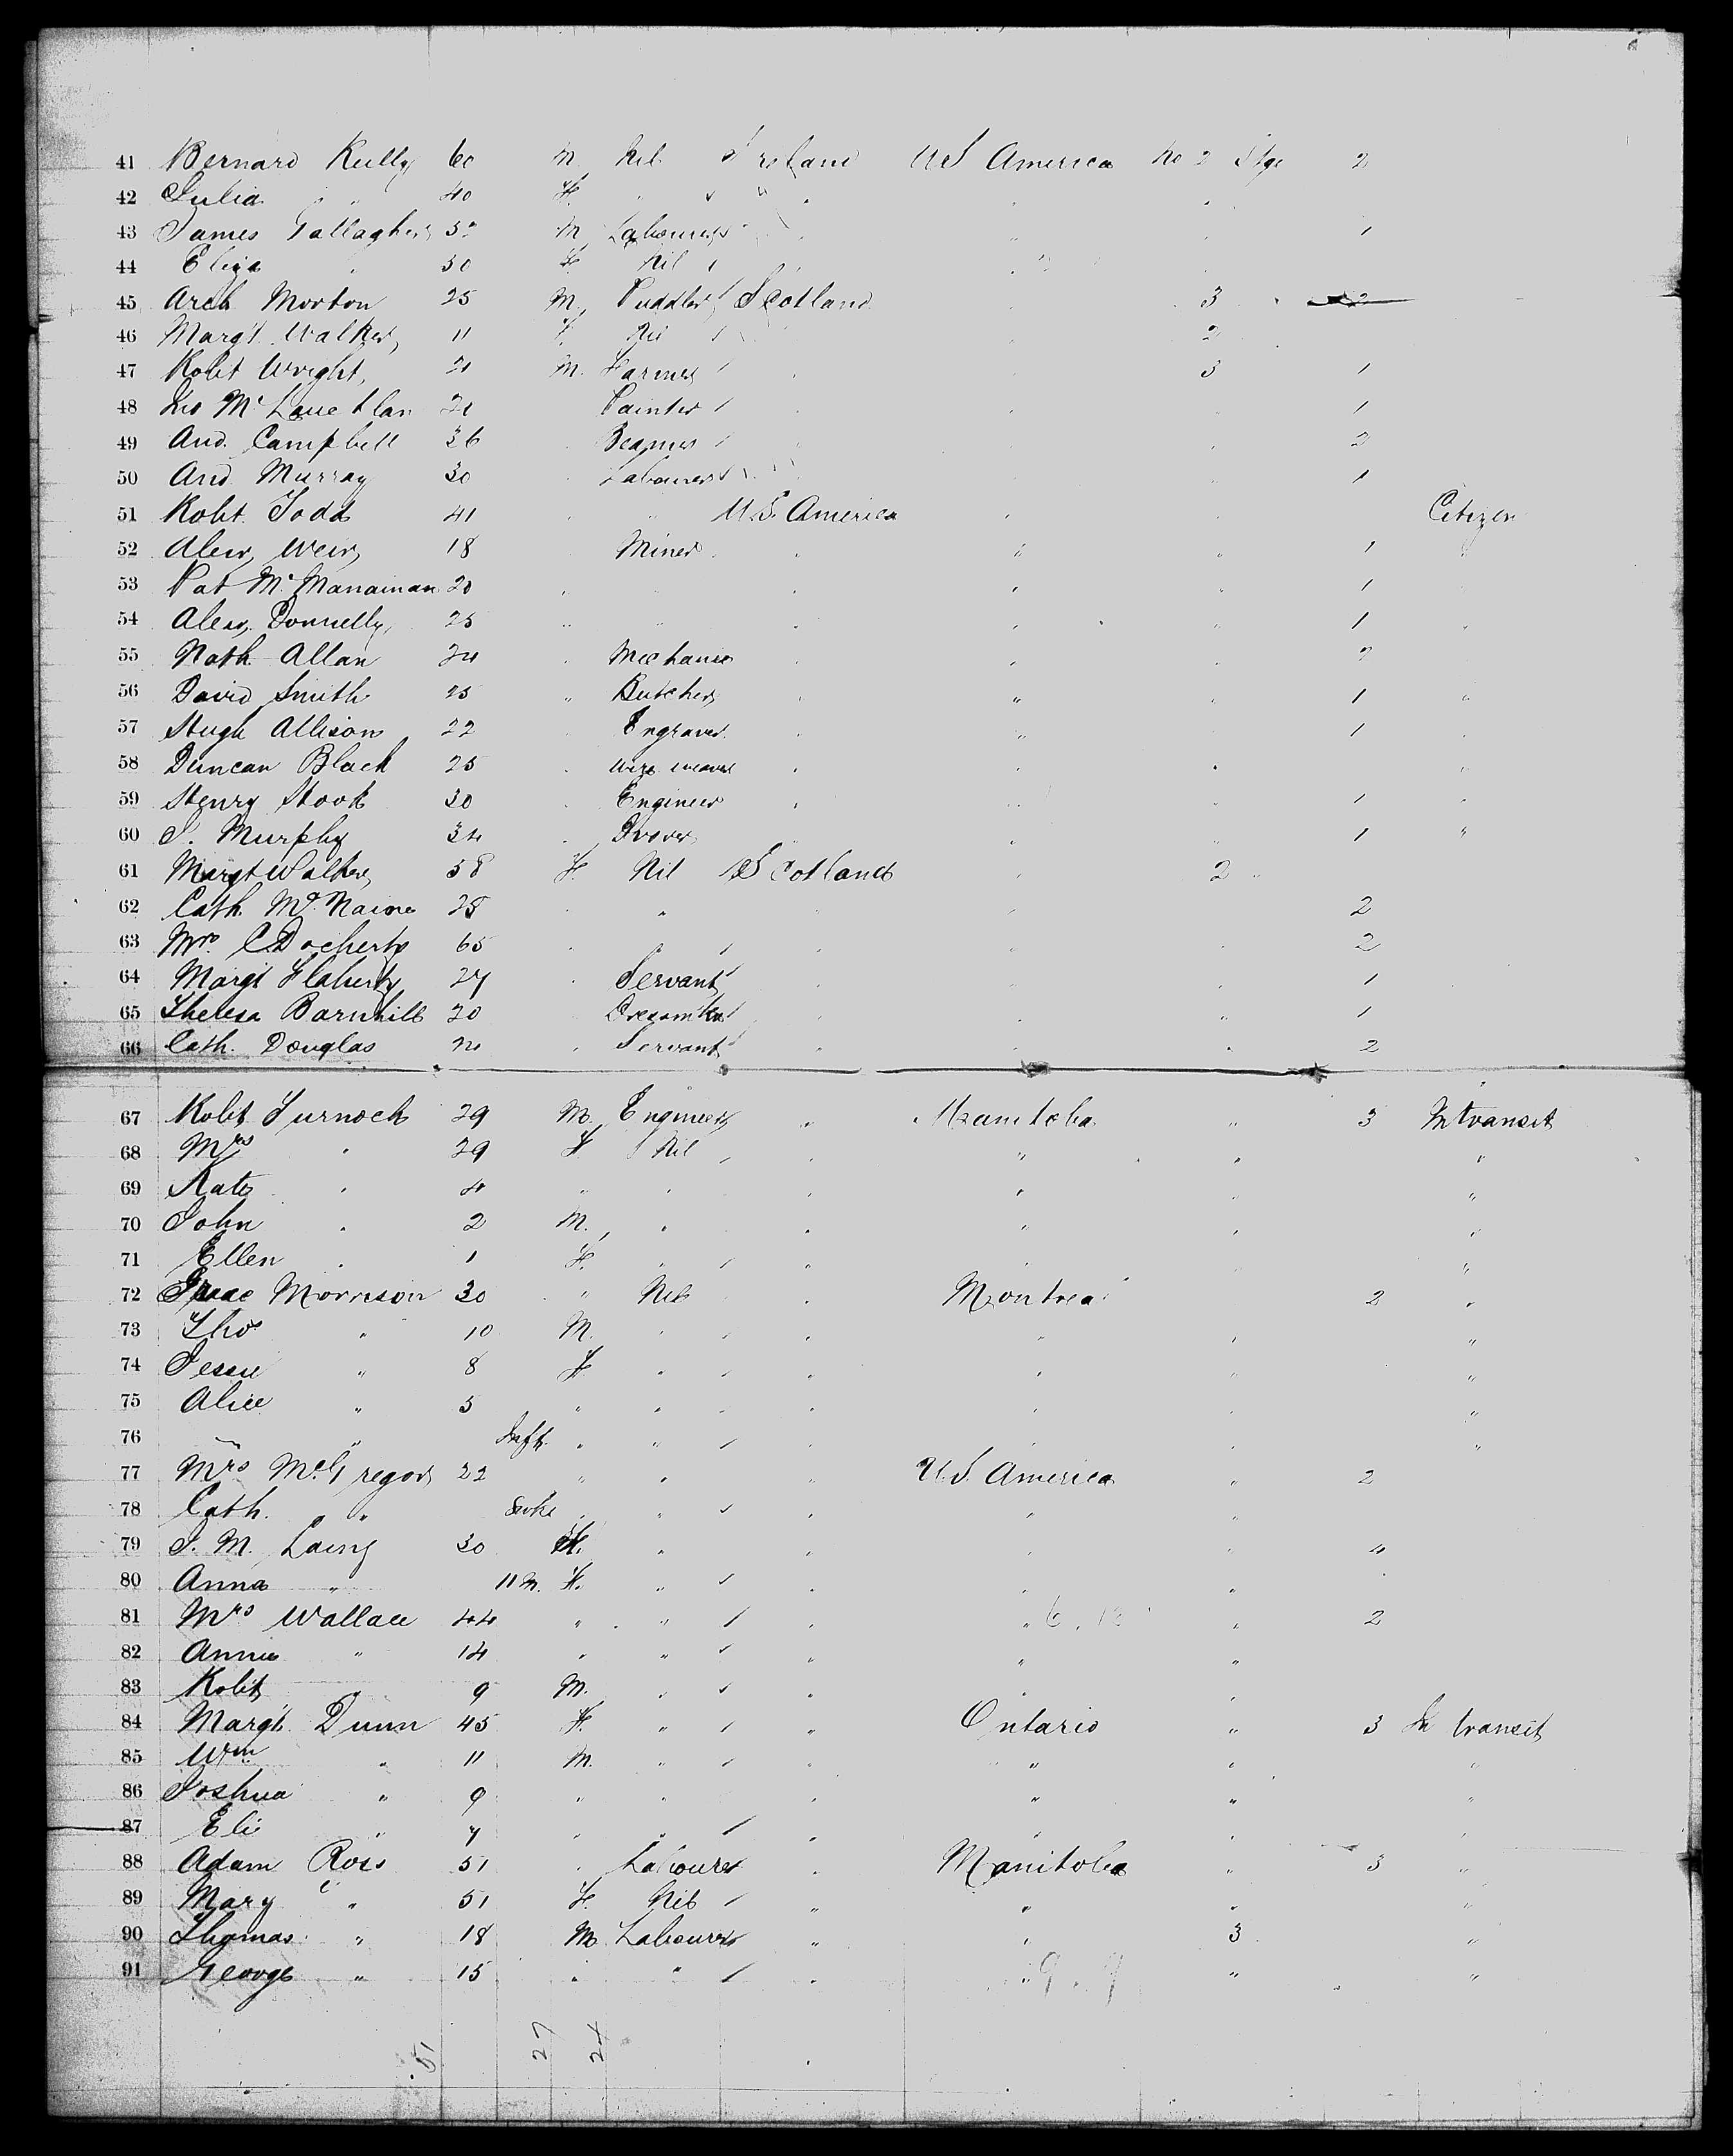 41 Bernard Kelly 60 M Nil Ireland U S America No 2 Stge 2
42 Julia " 40 F " " "
43 James Gallagher M Labourer 1
44 Eliza " 30 F Nil
45 Arch Morton 25 M Puddler Scotland 3 2
46 Margt Walker 11 F Nil 2
47 Robt Wright 21 M. Farmer 3 1
48 Painter 1
49 And. Campbell 36 Beamer 2
50 And Murray 30 Labourer 1
51 Robt. Todd 41 " U.S. America Citizen
52 Alexr Weir 18 Miner " " 1 "
53 Pat McManaman 20 " " 1
54 Alexr Donnelly 25 " " " 1 "
55 Nath Allan 24 Mechanic 2
56 David Smith 25 " Butcher " 1 "
57 Hugh Allison 22 Engraver " 1
58 Duncan Black 25 Wire weaver "
59 Henry Hook 30 Engineer " 1 "
60 J. Murphy 34 Drover " " 1 "
61 Margt Walker 58 F Nil Scotland 2 "
62 Cath. McNairn 28 " 2
63 Mrs C Docherty 65 " 2
64 Margt Flaherty 27 Servant 1
65 Theresa Barnhill 20 Dressmkr " 1
66 Cath. Douglas Servant " 2
67 Robt Turnock 29 M. Engineer " Manitoba " 3 In transit
68 Mrs " 29 F Nil " " "
69 Kate " 4 " " " " "
70 John " 2 M. " " " "
71 Ellen " 1 F. " " "
72 Morrison 30 " Nil Montreal 2 "
73 Thos " 10 M. " " "
74 Jessie " 8 F " " " " "
75 Alice " 5 " " " "
76 " " Inft. " " "
77 Mrs McGregor 22 " " " U.S. America " 2
78 Cath. " " " " "
79 J. M. Laing 30 " " " 4
80 Anna " 11 M. F. " " "
81 Mrs Wallace 44 " " " " 2
82 Annie " 14 " " " " "
83 Robt " 9 M. " " " "
84 Margt. Dunn 45 F. " " Ontario " 3 In transit
85 Wm " 11 M. " " " " "
86 Joshua " 9 " " " " " "
87 Eli " 7 " " " " " "
88 Adam Ross 51 " Labourer " Manitoba " 3 "
89 Mary " 51 F. Nil " " " "
90 Thomas " 18 M Labourer " " 3 "
91 George " 15 " " " " " "
51 27 24